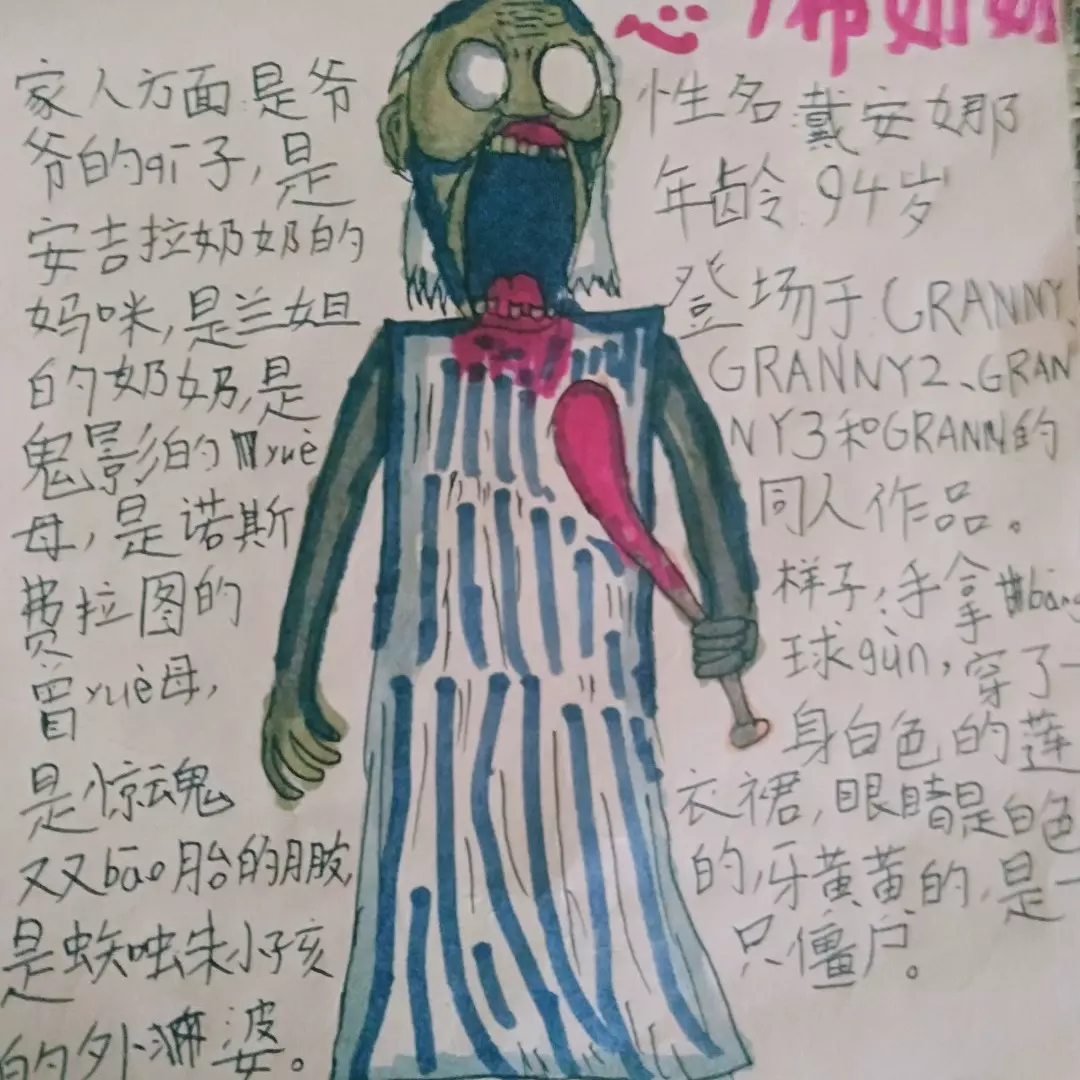 恐怖奶奶
家人方面:是爷
爷的qī子,是
安吉拉奶奶的
妈咪,是兰姐
的奶奶,是
鬼影的yuè
母,是诺斯
费拉图的
曾yuè母,
是惊魂
又又bāo胎的朋友,
是蜘蛛小孩
的外婆。
性名:戴安娜
年龄:94岁
登场于GRANNY、
GRANNY2、GRAN
NY3和GRANN的
同人作品。
样子:手拿bàng
球gùn,穿了一
身白色的莲
衣裙,眼睛是白色
的,牙黄黄的,是一
只僵尸。